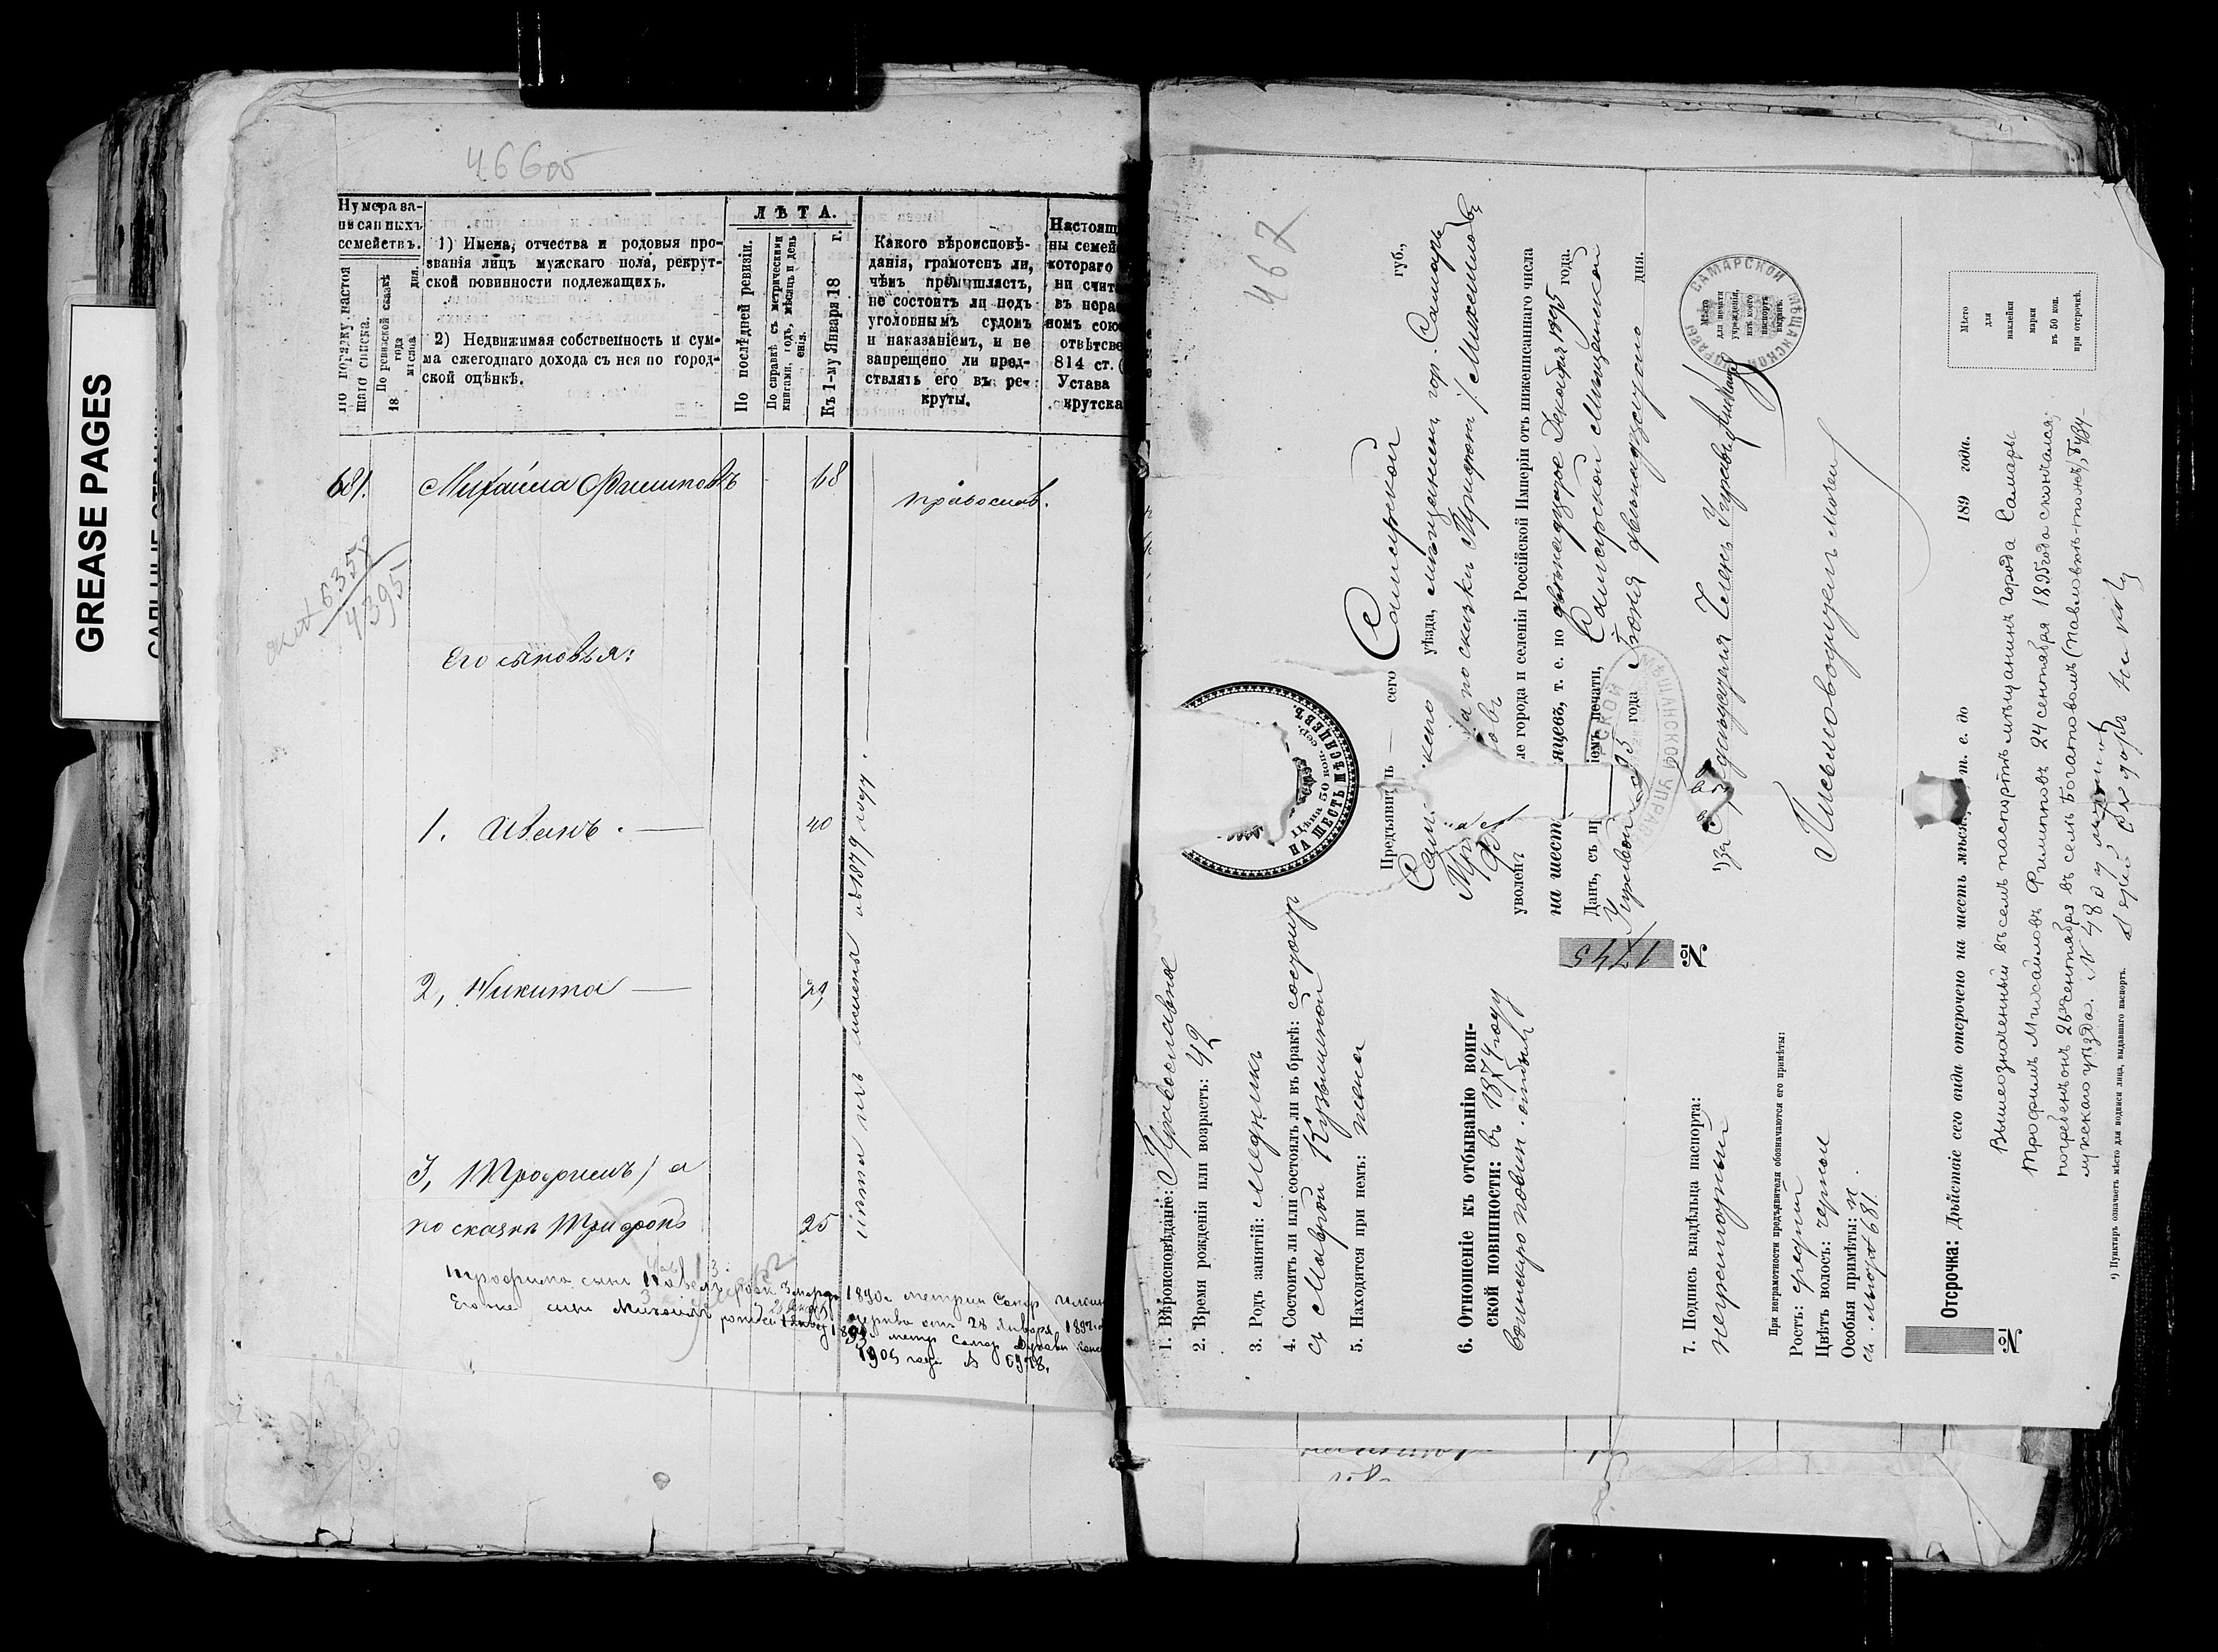 GREASE PAGES
46605
Нумера за-
писанныхъ
семействъ.
По порядку настоя
щаго списка.
По ревизской сказкѣ
18 года
мѣсяца дня.
1) Имена, отчества и родовыя про-
званія лицъ мужскаго пола, рекрут-
ской повинности подлежащихъ.
2) Недвижимая собственность и сум-
ма ежегоднаго дохода съ нея по город-
ской оцѣнкѣ.
ЛѢТА.
По послѣдней ревизіи.
По справкѣ съ метрическими
книгами, годъ, мѣсяцъ и день
енія.
Къ 1-му Января 18 г.
Какого вѣроисповѣ-
данія, грамотенъ ли,
чѣмъ промышляетъ,
не состоитъ ли подъ
уголовнымъ судомъ
и наказаніемъ, и не
запрещено ли пред-
ставлять его въ ре-
круты.
Настоящ
ны семей
котораго
ни счит
въ нера
номъ сою
отвѣтсве
814 ст. (
Устава
крутска
681. Михайла Филиповъ 68 православ.
6357
4395
Его сыновья:
1. Иванъ. 40
2, Никита 29
3, Трофимъ, а
по сказкѣ Трифонъ 25
лѣта къ 1879 году
Трофима сынъ Павелъ 1890 метрич Самар
Его же сынъ Михаилъ церкви отъ 28 Января
1905 года № 6978.
467
НА ШЕСТЬ МѢСЯЦЕВЪ.
Цѣна 50 коп. сер.
Предъявитель сего Самарской губ.,
Сам каго уѣзда, мѣщанинъ гор. Самары
Тр а по сказкѣ Трифонъ Михайловъ
Ф овъ
уволенъ ые города и селенія Россійской Имперіи отъ нижеписаннаго числа
на шесть мѣсяцевъ, т. е. по двѣнадцатое Декабря 1895 года.
Данъ, съ п емъ печати, Самарской Мѣщанской
Управой 1895 года Іюня двѣнадцатаго дня.
№ 1745
за Предсѣдателя Членъ Управы
Письмоводитель
САМАРСКОЙ МѢЩАНСКОЙ УПРАВЫ
Мѣсто
для печати
учрежденія,
изъ коего
паспортъ
выданъ.
1. Вѣроисповѣданіе: Православное
2. Время рожденія или возрастъ: 42
3. Родъ занятій: мѣдникъ
4. Состоитъ ли или состоялъ ли въ бракѣ: состоитъ
съ Маврой Кузьминой
5. Находятся при немъ: жена
6. Отношеніе къ отбыванію воин-
ской повинности: въ 1874 году
воинскую повин. отбылъ
7. Подпись владѣльца паспорта:
неграмотный
При неграмотности предъявителя обозначаются его примѣты:
Ростъ: средній
Цвѣтъ волосъ: черный
Особыя примѣты: н.
681.
Отсрочка: Дѣйствіе сего вида отсрочено на шесть мѣся т. е. до 189 года.
№
Мѣсто
для
наклейки
марки
въ 50 коп.
при отсрочкѣ.
Вышеозначенный въ семъ паспортѣ мѣщанинъ города Самары
Трофимъ Михайловъ Филиповъ 24 сентября 1895 года скончался,
погребенъ онъ 26 сентября въ селѣ Богатовомъ (Павловкѣ-тожъ), Бузу-
лукскаго уѣзда. № 48
¹) Пунктиръ означаетъ мѣсто для подписи лица, выдавшаго паспортъ.